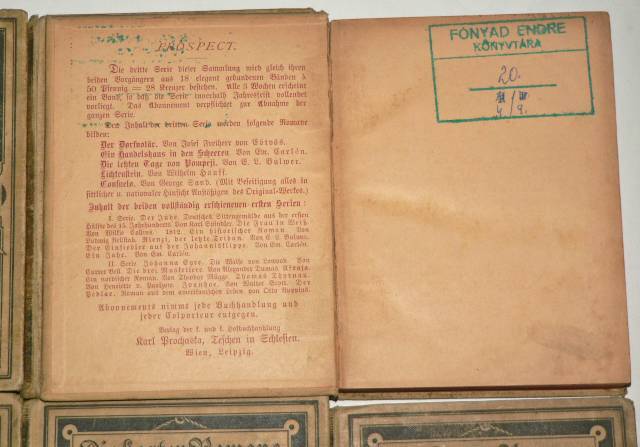 PROSPECT.
Die dritte Serie dieser Sammlung wird gleich ihren
beiden Vorgängern aus 18 elegant gebundenen Bänden à
50 Pfennig = 28 Kreuzer bestehen. Alle 3 Wochen erscheint
ein Band, so daß die Serie innerhalb Jahresfrist vollendet
vorliegt. Das Abonnement verpflichtet zur Abnahme der
ganzen Serie.
Den Inhalt der dritten Serie werden folgende Romane
bilden:
Der Dorfnotär. Von Josef Freiherr von Eötvös.
Ein Handelshaus in den Scheeren. Von Em. Carlén.
Die letzten Tage von Pompeji. Von E. L. Bulwer.
Lichtenstein. Von Wilhelm Hauff.
Consuelo. Von George Sand. (Mit Beseitigung alles in
sittlicher u. nationaler Hinsicht Anstößigen des Original-Werkes.)
Inhalt der beiden vollständig erschienenen ersten Serien:
I. Serie. Der Jude. Deutsches Sittengemälde aus der ersten
Hälfte des 15. Jahrhunderts. Von Karl Spindler. Die Frau in Weiß.
Von Wilkie Collins. 1812. Ein historischer Roman. Von
Ludwig Rellstab. Rienzi, der letzte Tribun. Von E. L. Bulwer.
Der Einsiedler auf der Johannisklippe. Von Em. Carlén.
Ein Jahr. Von Em. Carlén.
II. Serie. Johanna Eyre. Die Waise von Lowood. Von
Currer Bell. Die drei Musketiere. Von Alexander Dumas. Afraja.
Ein nordischer Roman. Von Theodor Mügge. Thomas Thyrnau.
Von Henriette v. Paalzow. Ivanhoe. Von Walter Scott. Der
Pedlar. Roman aus dem amerikanischen Leben von Otto Ruppius.
Abonnements nimmt jede Buchhandlung und
jeder Colporteur entgegen.
Verlag der k. und k. Hofbuchhandlung
Karl Prochaska, Teschen in Schlesien.
Wien, Leipzig.
FONYAD ENDRE
KÖNYVTÁRA
20.